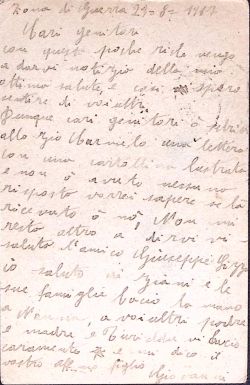 Zona di Guerra 29-8-1917
Cari genitori
con queste poche righe vengo
a darvi notizie della mia
ottima salute, e così spero
sentire di voi altri
Dunque cari genitori ò scritto
allo zio Carmelo una lettera
con una cartollina lustrata
e non ò avuto nessuna
risposta vorrei sapere se la
ricevuto ò nò Non mi
resta altro a dirvi vi
saluto l'amico Giuseppe
ò saluto di Giani e le
sue famiglie bacio la mano
a Nonna, a voi altri padre
e madre, e Turiddu vi bacio
caramente e mi dico il
vostro aff figlio Giovanni